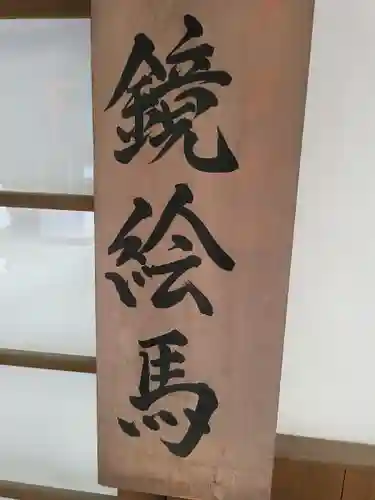 鏡絵馬